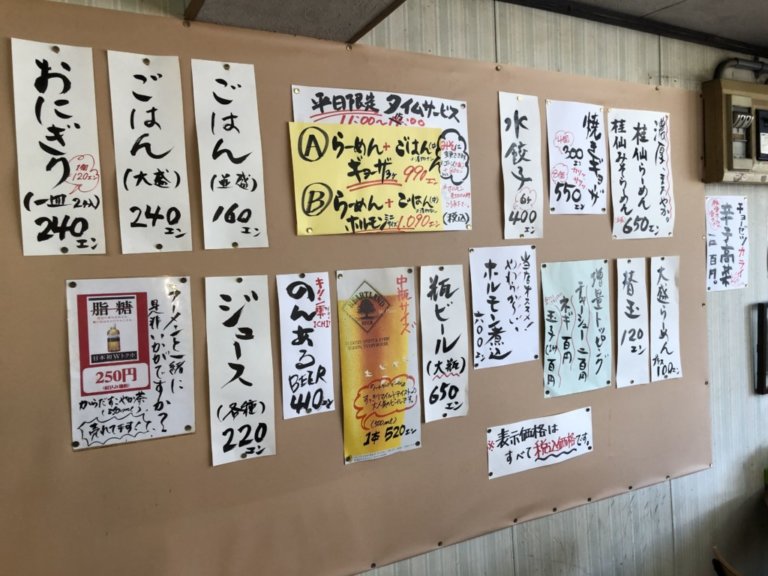 おにぎり
1個
120エン
(一皿 2ケ)
240エン
ごはん
(大盛)
240エン
ごはん
(並盛)
160エン
平日限定 タイムサービス
11:00~
Ⓐらーめん+ごはん(小)
ギョーザ3ケ 990エン
Ⓑらーめん+ごはん(中)
ホルモン 1,090エン
(税込)
水餃子
6ケ
400エン
焼きギョーザ
4個
300エン
8個
550エン
濃厚!まろやか
桂仙らーめん
桂仙みそらーめん
650エン
チョーゼツカライ
辛子高菜
二百円
ラーメンと一緒に
是非いかがですか?
脂 糖
日本初Wトクホ
250円
からだすこやか茶
(売れてます)
ジュース
(各種)
220エン
キリン零ICHI
のんある
BEER
440エン
HEARTLAND
BEER
中瓶サイズ
(500ml)
1本 520エン
瓶ビール
(大瓶)
650エン
当店オススメ!
やわらか〜い
ホルモン煮込
六〇〇エン
増量トッピング
チャーシュー 二百円
ネギ 百円
玉子 百円
替玉
120エン
大盛らーめん
プラス100エン
※表示価格は
すべて税込価格です。